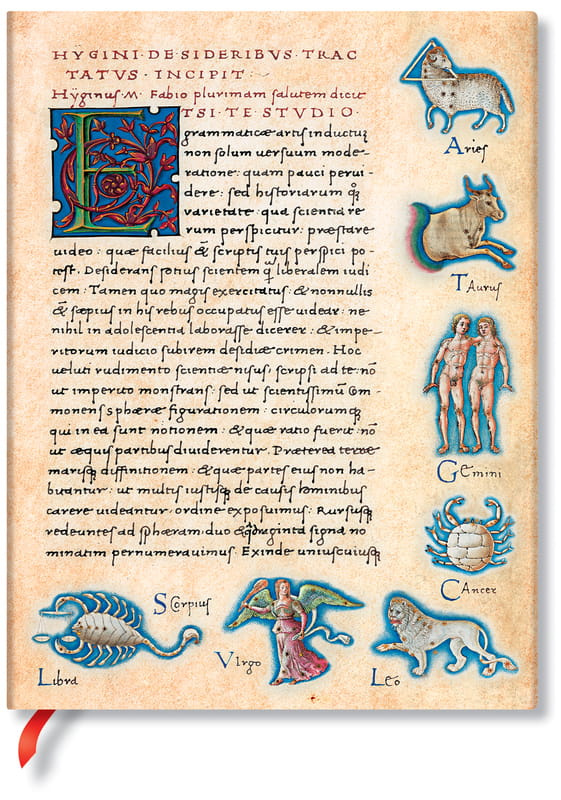 HŸGINI·DE·SIDERIBVS·TRAC
TATVS·INCIPIT·
Hÿginus·M· Fabio plurimam salutem dicit
ETSI·TE·STVDIO·
grammaticæ artis inductuꝫ
non solum versuum mode-
ratione: quam pauci pervi-
dere: sed historiarum qꝫ
varietate qua scientia re-
rum perspicitur: præstare
uideo: quæ facilius & scriptis tuis perspici po-
test. Desiderans potius scientem qꝫ liberalem iudi
cem: Tamen quo magis exercitatus: & nonnullis
& sæpius in his rebus occupatus esse uidear: ne-
nihil in adolescentia laborasse dicerer: & impe-
ritorum iudicio subirem desidiæ crimen. Hoc
ueluti rudimento scientiæ nisus, scripsi ad te: nō
ut imperito monstrans: sed ut scientissimū com-
monens sphæræ figurationem: circulorumqꝫ
qui in ea sunt notionem: & quæ ratio fuerit: nō
ut æquis partibus diuiderentur. Præterea terræ
marisqꝫ diffinitionem: & quæ partes eius non ha-
buntur: ut multis iustisqꝫ de causis hominibus
carere uideantur: ordine exposuimus: Rursusqꝫ
redeuntes ad sphæram: duo & qdraginta signa no
minatim pernumerauimus. Exinde uniuscuiusqꝫ
Aries
TAurus
GEmini
CAncer
LEo
VIrgo
SCorpius
LIbra